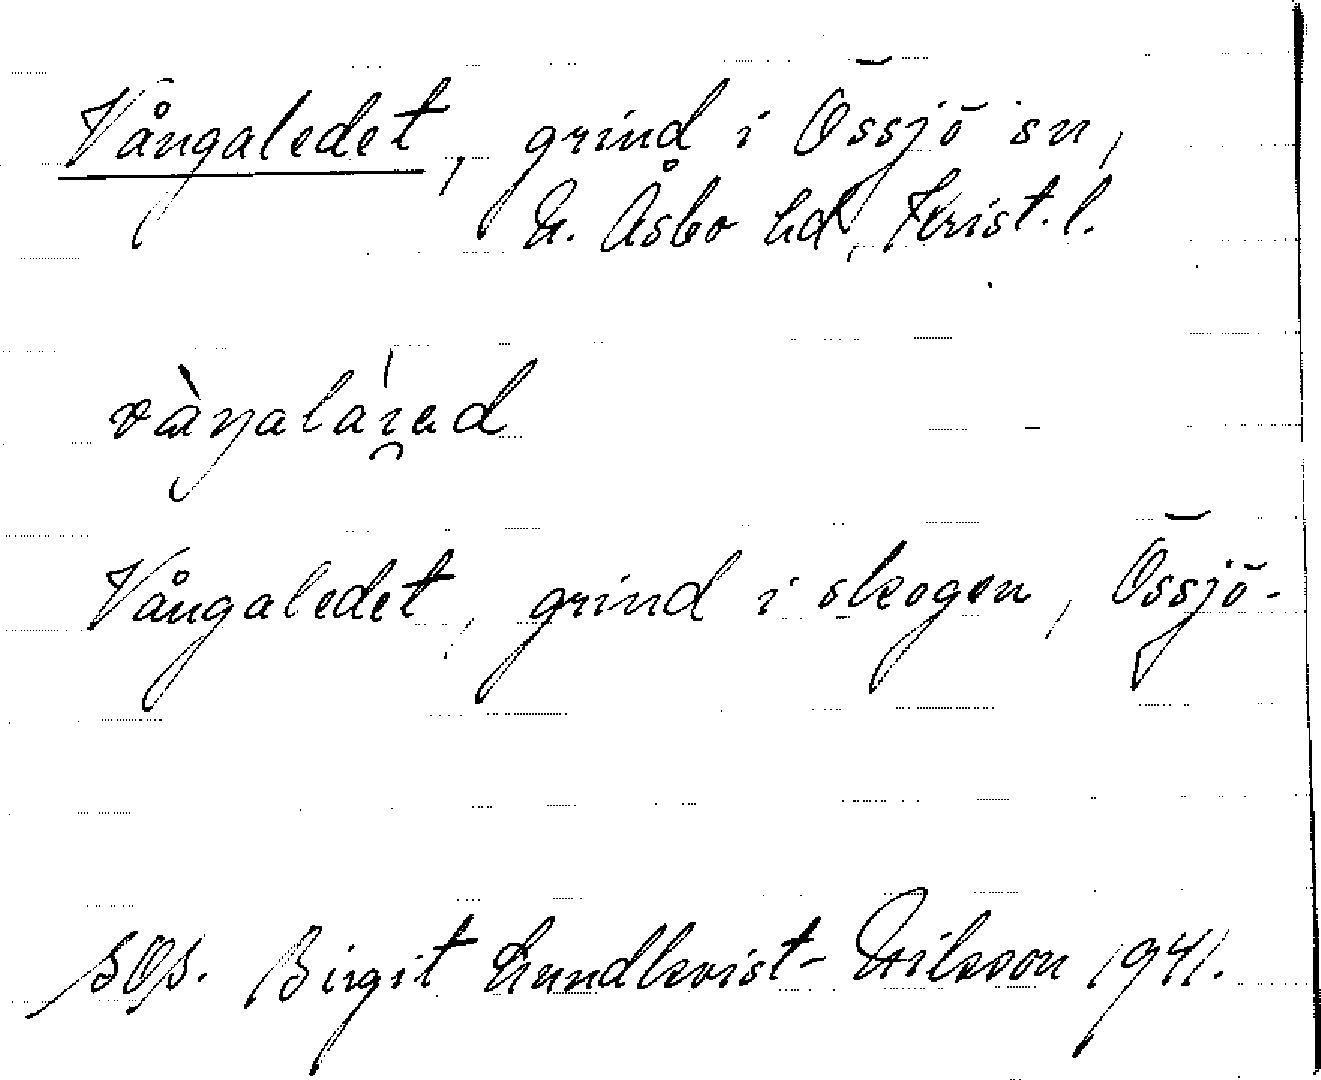 Vångaledet, grind i Össjö sn,
N. Åsbo hd, Krist. l.
Vångaledet, grind i skogen, Össjö-
SOS. Birgit Lundkvist-Nilsson 1941.